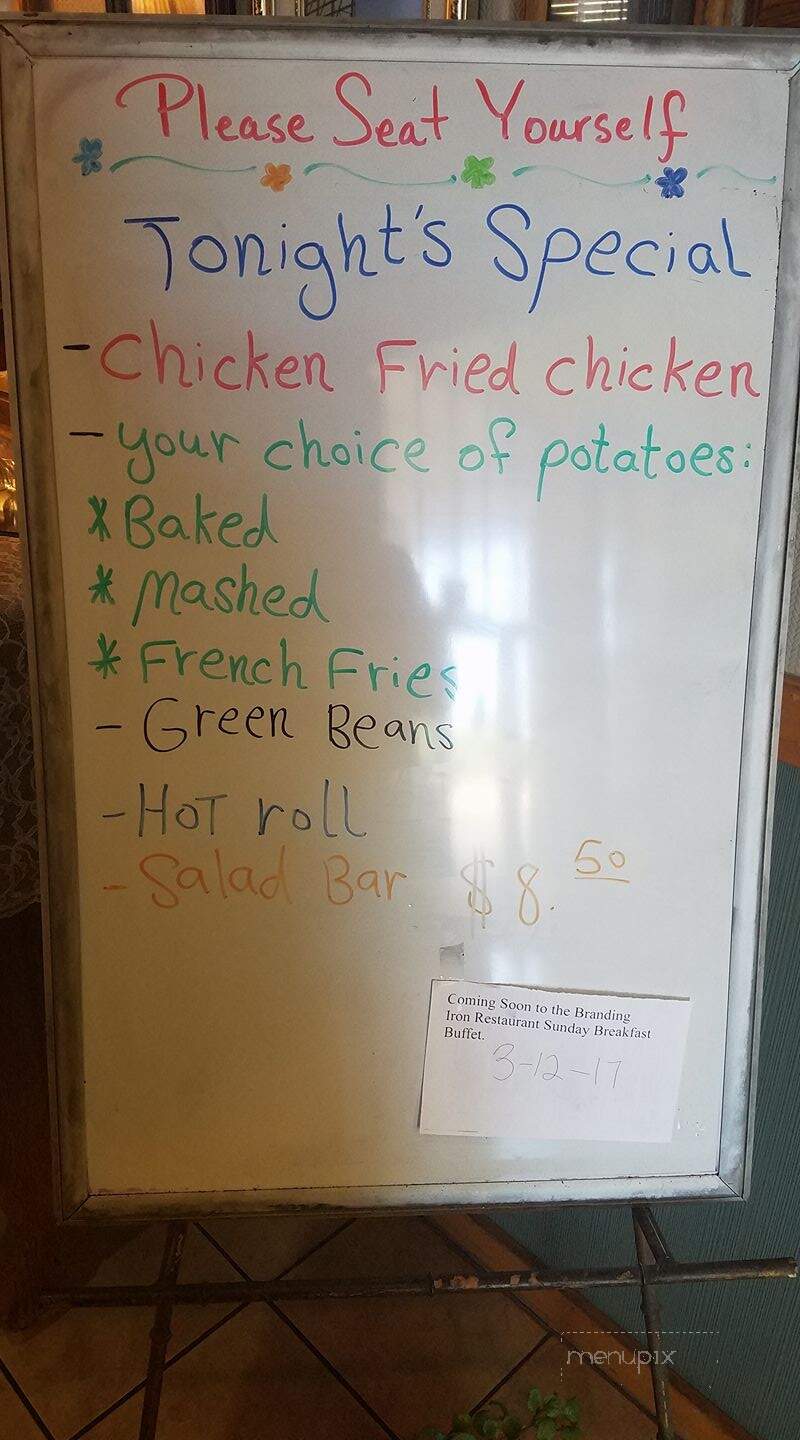 Please Seat Yourself
Tonight's Special
- Chicken Fried chicken
- your choice of potatoes:
* Baked
* mashed
* French Fries
- Green Beans
- HoT roll
- Salad Bar $8.50
Coming Soon to the Branding
Iron Restaurant Sunday Breakfast
Buffet.
3-12-17
menupix